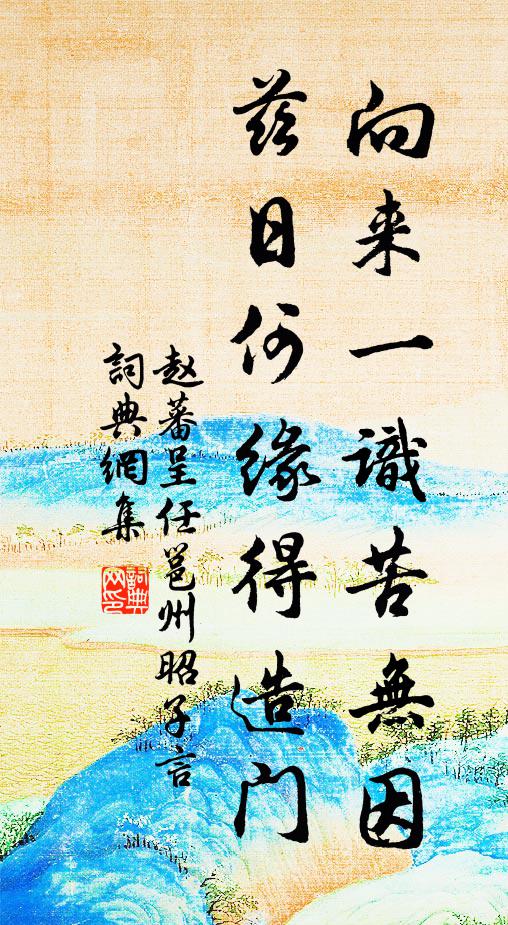 向来一識苦無因
茲日何緣得造門
赵蕃呈任邕州昭子言
詞典網集
詞典网印